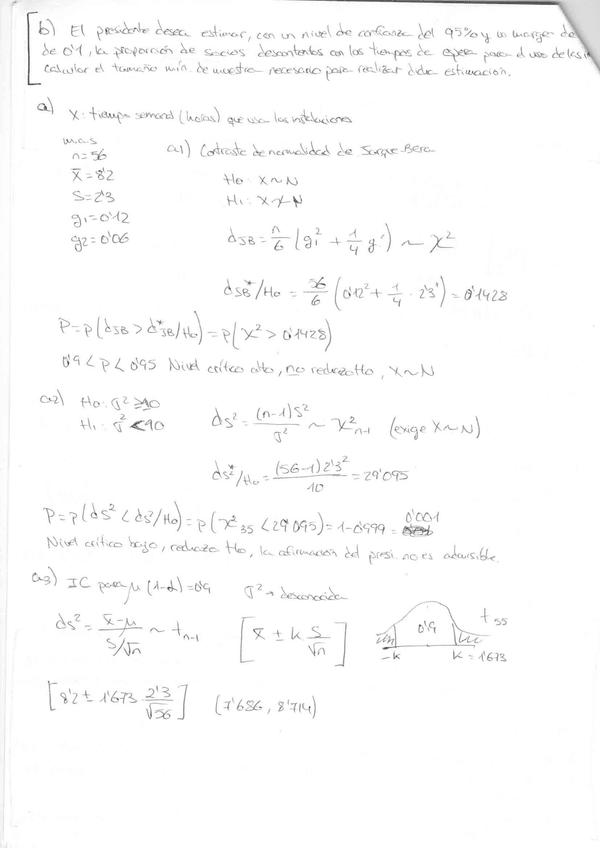 b) El presidente desea estimar, con un nivel de confianza del 95% y un margen de
de 0'1, la proporción de socios descontentos con los tiempos de espera para el uso de las
calcular el tamaño mín. de muestra necesario para realizar dicha estimación.
a) X: tiempo semanal (horas) que usa las instalaciones
m.a.s
n=56
x̄=8'2
S=2'3
g1=0'12
g2=0'06
a1) Contraste de normalidad de Jarque-Bera
Ho: X~N
H1: X≁N
dJB = n/6 (g1² + 1/4 g²) ~ χ²
dJB*/Ho = 56/6 (0'12² + 1/4 · 2'3²) = 0'1428
P=p(dJB > d*JB/Ho) = p(χ² > 0'1428)
0'9 < p < 0'95 Nivel crítico alto, no rechazo Ho, X~N
a2) Ho: σ² ≥ 10
H1: σ² < 10
ds² = (n-1)S²/σ² ~ χ²n-1 (exige X~N)
ds²*/Ho = (56-1)2'3²/10 = 29'095
P=p(ds² < ds²/Ho) = p(χ²35 < 29'095) = 1-0'999 = 0'001
Nivel crítico bajo, rechazo Ho, la afirmación del presi. no es admisible.
a3) IC para μ (1-α)=0'9 σ² → desconocida
ds² = x̄-μ / S/√n ~ tn-1 [x̄ ± k S/√n]
0'9 t55
-k k=1'673
[8'2 ± 1'673 2'3/√56] (7'686, 8'714)